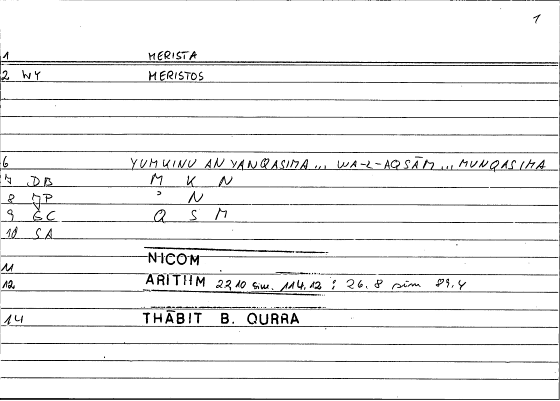 1
1 MERISTA
2 WY MERISTOS
6 YUMKINU AN YANQASIMA... WA-L-AQSĀM... MUNQASIMA
7 DB M K N
8 JP ʾ N
9 GC Q S M
10 SA
11 NICOM
12 ARITHM 22,10 sim. 114.12 ; 26.8 sim 89.4
14 THĀBIT B. QURRA